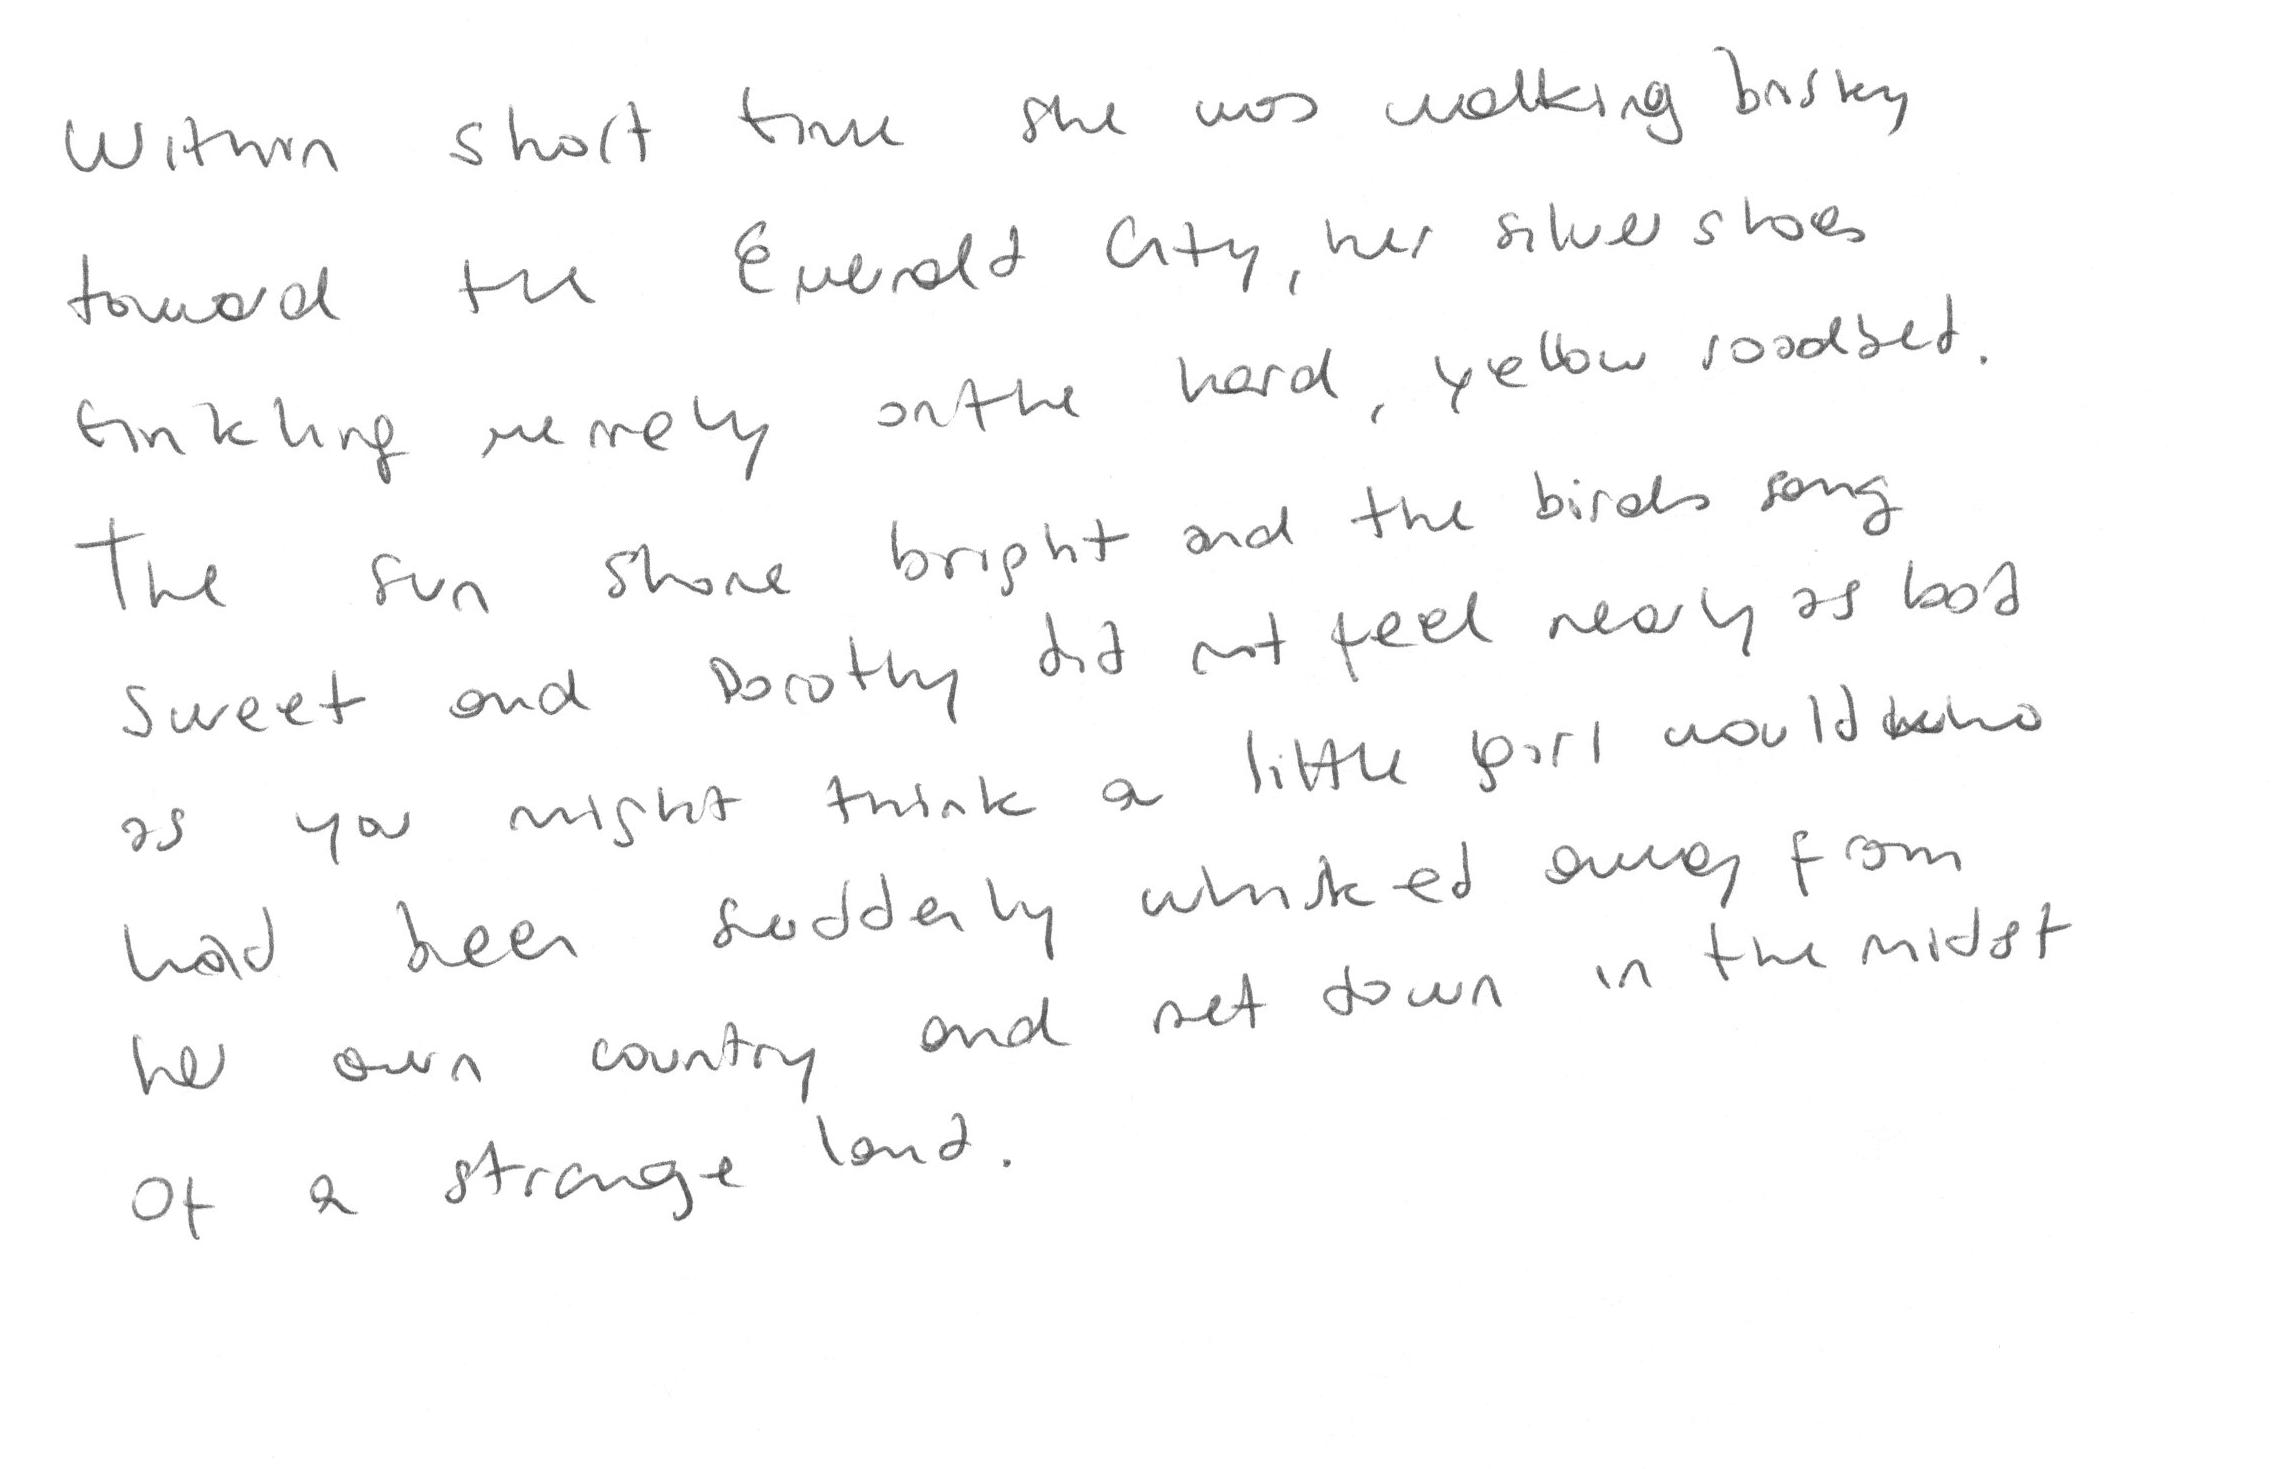 Within short time she was walking briskly
toward the Emerald City, her silver shoes
tinkling merrily on the hard, yellow roadbed.
The sun shone bright and the birds sang
sweet and Dorothy did not feel nearly as bad
as you might think a little girl would who
had been suddenly whisked away from
her own country and set down in the midst
of a strange land.